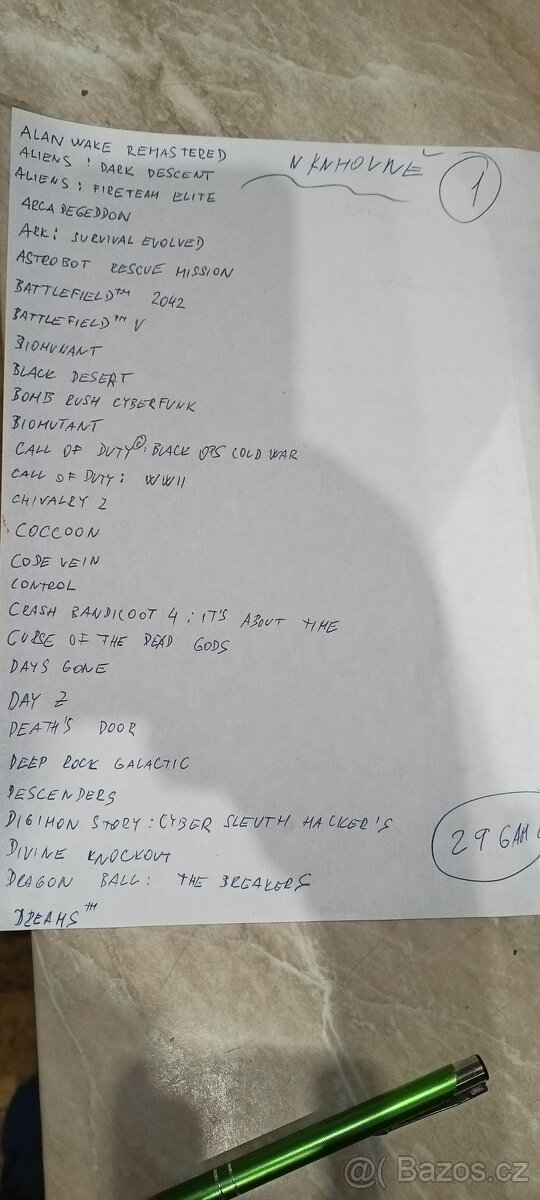 V KNIHOVNĚ
1
ALAN WAKE REMASTERED
ALIENS : DARK DESCENT
ALIENS : FIRETEAM ELITE
ARCADEGEDDON
ARK: SURVIVAL EVOLVED
ASTROBOT RESCUE MISSION
BATTLEFIELD™ 2042
BATTLEFIELD™ V
BIOMUNANT
BLACK DESERT
BOMB RUSH CYBERFUNK
BIOMUTANT
CALL OF DUTY®: BLACK OPS COLD WAR
CALL OF DUTY: WWII
CHIVALRY 2
COCCOON
CODE VEIN
CONTROL
CRASH BANDICOOT 4 : IT'S ABOUT TIME
CURSE OF THE DEAD GODS
DAYS GONE
DAY Z
DEATH'S DOOR
DEEP ROCK GALACTIC
DESCENDERS
DIGIMON STORY : CYBER SLEUTH HACKER'S
29 GAM
DIVINE KNOCKOUT
DRAGON BALL: THE BREAKERS
DREAMS™
@( Bazoš.cz